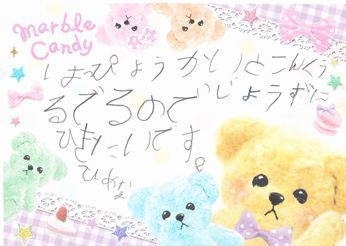 marble
Candy
はっぴょうかいとこんくう
るでるので じょうずに
ひきたいです。
ひめな